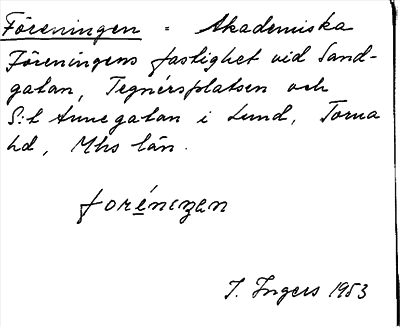 Föreningen = Akademiska
Föreningens fastighet vid Sand-
gatan, Tegnérsplatsen och
S:t Annegatan i Lund, Torna
hd, Mhs län.
foréningen
I. Ingers 1953